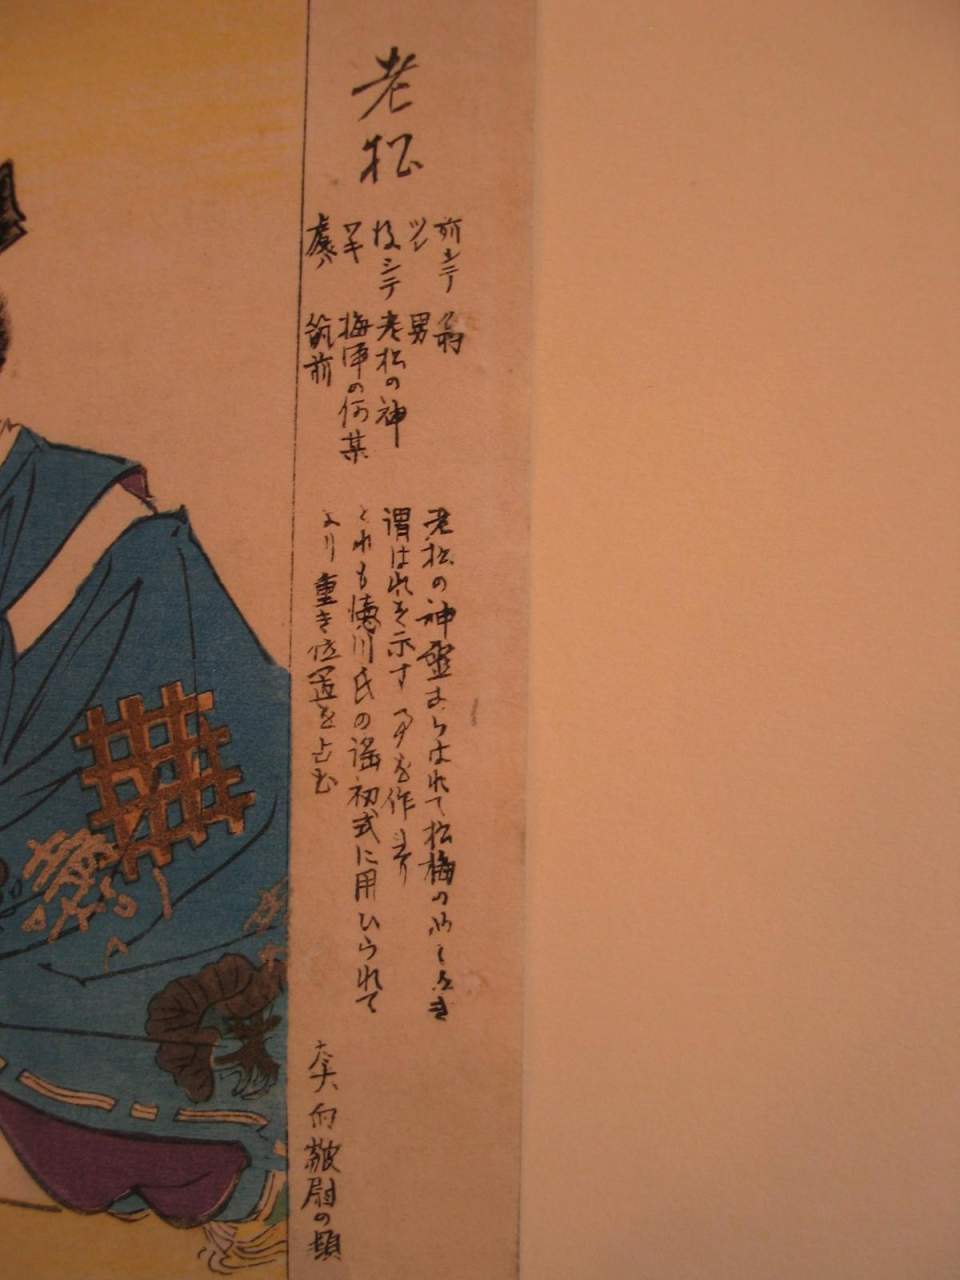 老松
前シテ 翁
ツレ 男
後シテ 老松の神
ワキ 梅津の何某
處ハ 筑前
老松の神霊あらはれて松梅のめでたき
謂はれを示す事を作れり
これも徳川氏の謡初式に用ひられて
より重き位置を占む
向敷尉の類